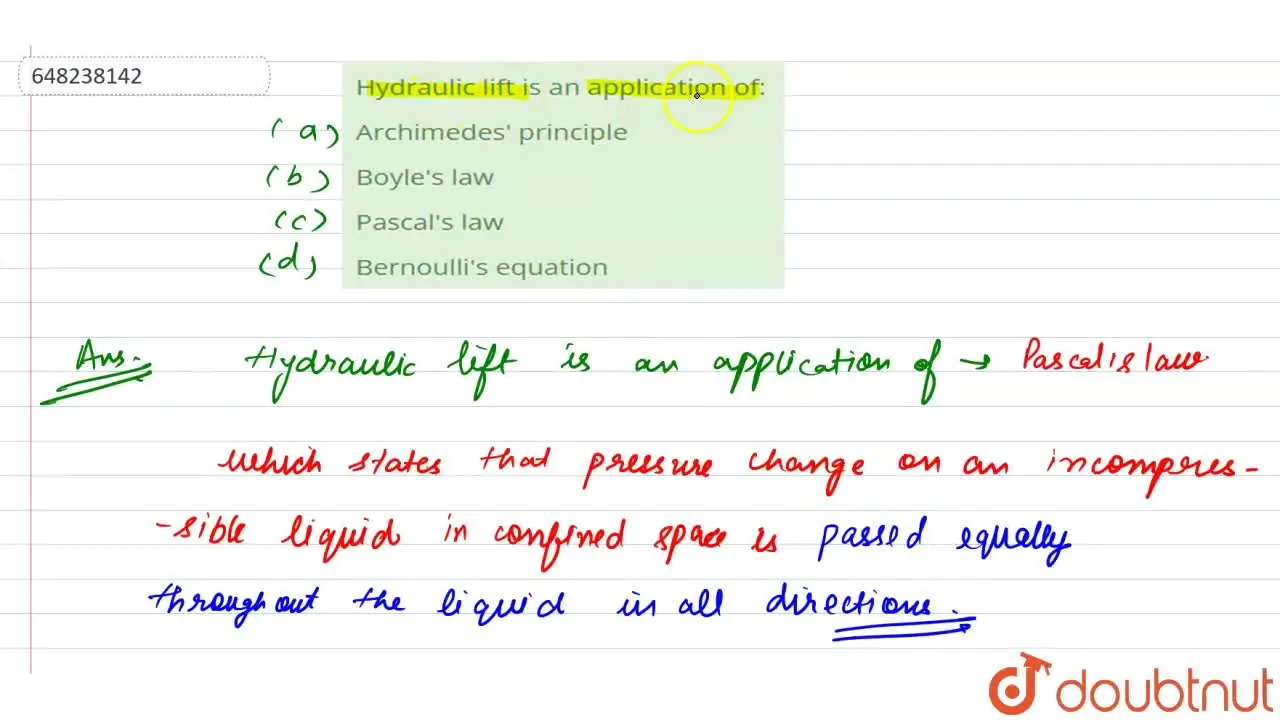 648238142
Hydraulic lift is an application of:
(a) Archimedes' principle
(b) Boyle's law
(c) Pascal's law
(d) Bernoulli's equation
Ans. Hydraulic lift is an application of → Pascal's law
which states that pressure change on an incompres-
-sible liquid in confined space is passed equally
throughout the liquid in all directions.
doubtnut